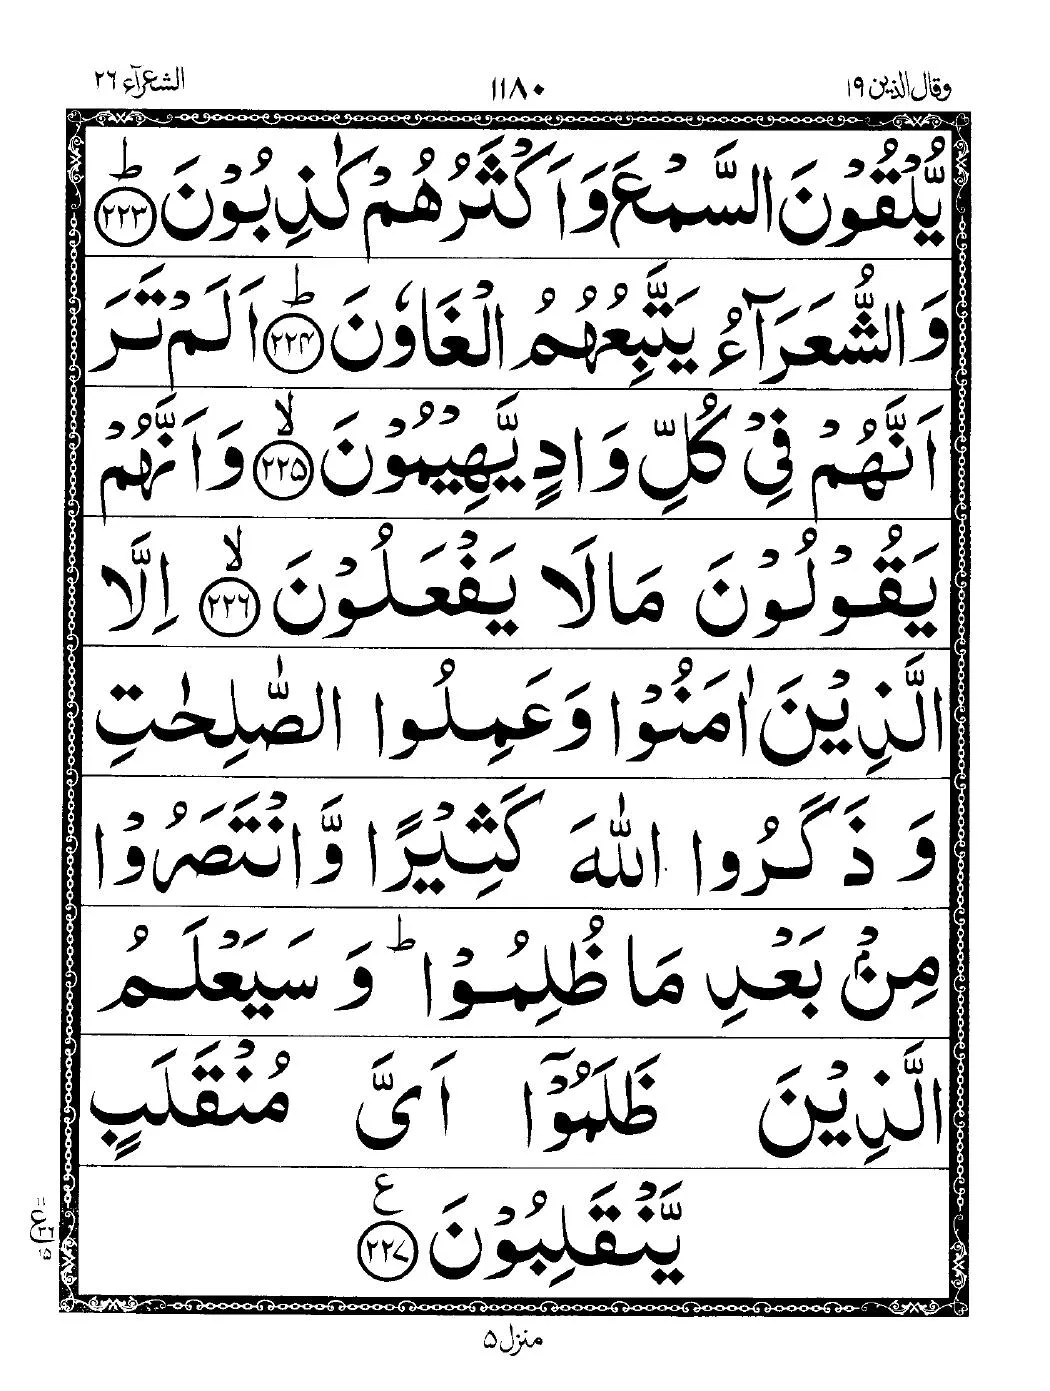 وقال الذین ۱۹ ۱۱۸۰ الشعرآء ۲۶
یُّلْقُوْنَ السَّمْعَ وَاَكْثَرُهُمْ كٰذِبُوْنَ ؕ﴿۲۲۳﴾
وَالشُّعَرَآءُ یَتَّبِعُهُمُ الْغَاوٗنَ ؕ﴿۲۲۴﴾ اَلَمْ تَرَ
اَنَّهُمْ فِیْ كُلِّ وَادٍ یَّهِیْمُوْنَ ۙ﴿۲۲۵﴾ وَاَنَّهُمْ
یَقُوْلُوْنَ مَالَا یَفْعَلُوْنَ ۙ﴿۲۲۶﴾ اِلَّا
الَّذِیْنَ اٰمَنُوْا وَعَمِلُوا الصّٰلِحٰتِ
وَذَكَرُوا اللّٰهَ كَثِیْرًا وَّانْتَصَرُوْا
مِنْۢ بَعْدِ مَا ظُلِمُوْا ؕ وَسَیَعْلَمُ
الَّذِیْنَ ظَلَمُوْۤا اَیَّ مُنْقَلَبٍ
یَّنْقَلِبُوْنَ ﴿۲۲۷﴾ ع
منزل ۵